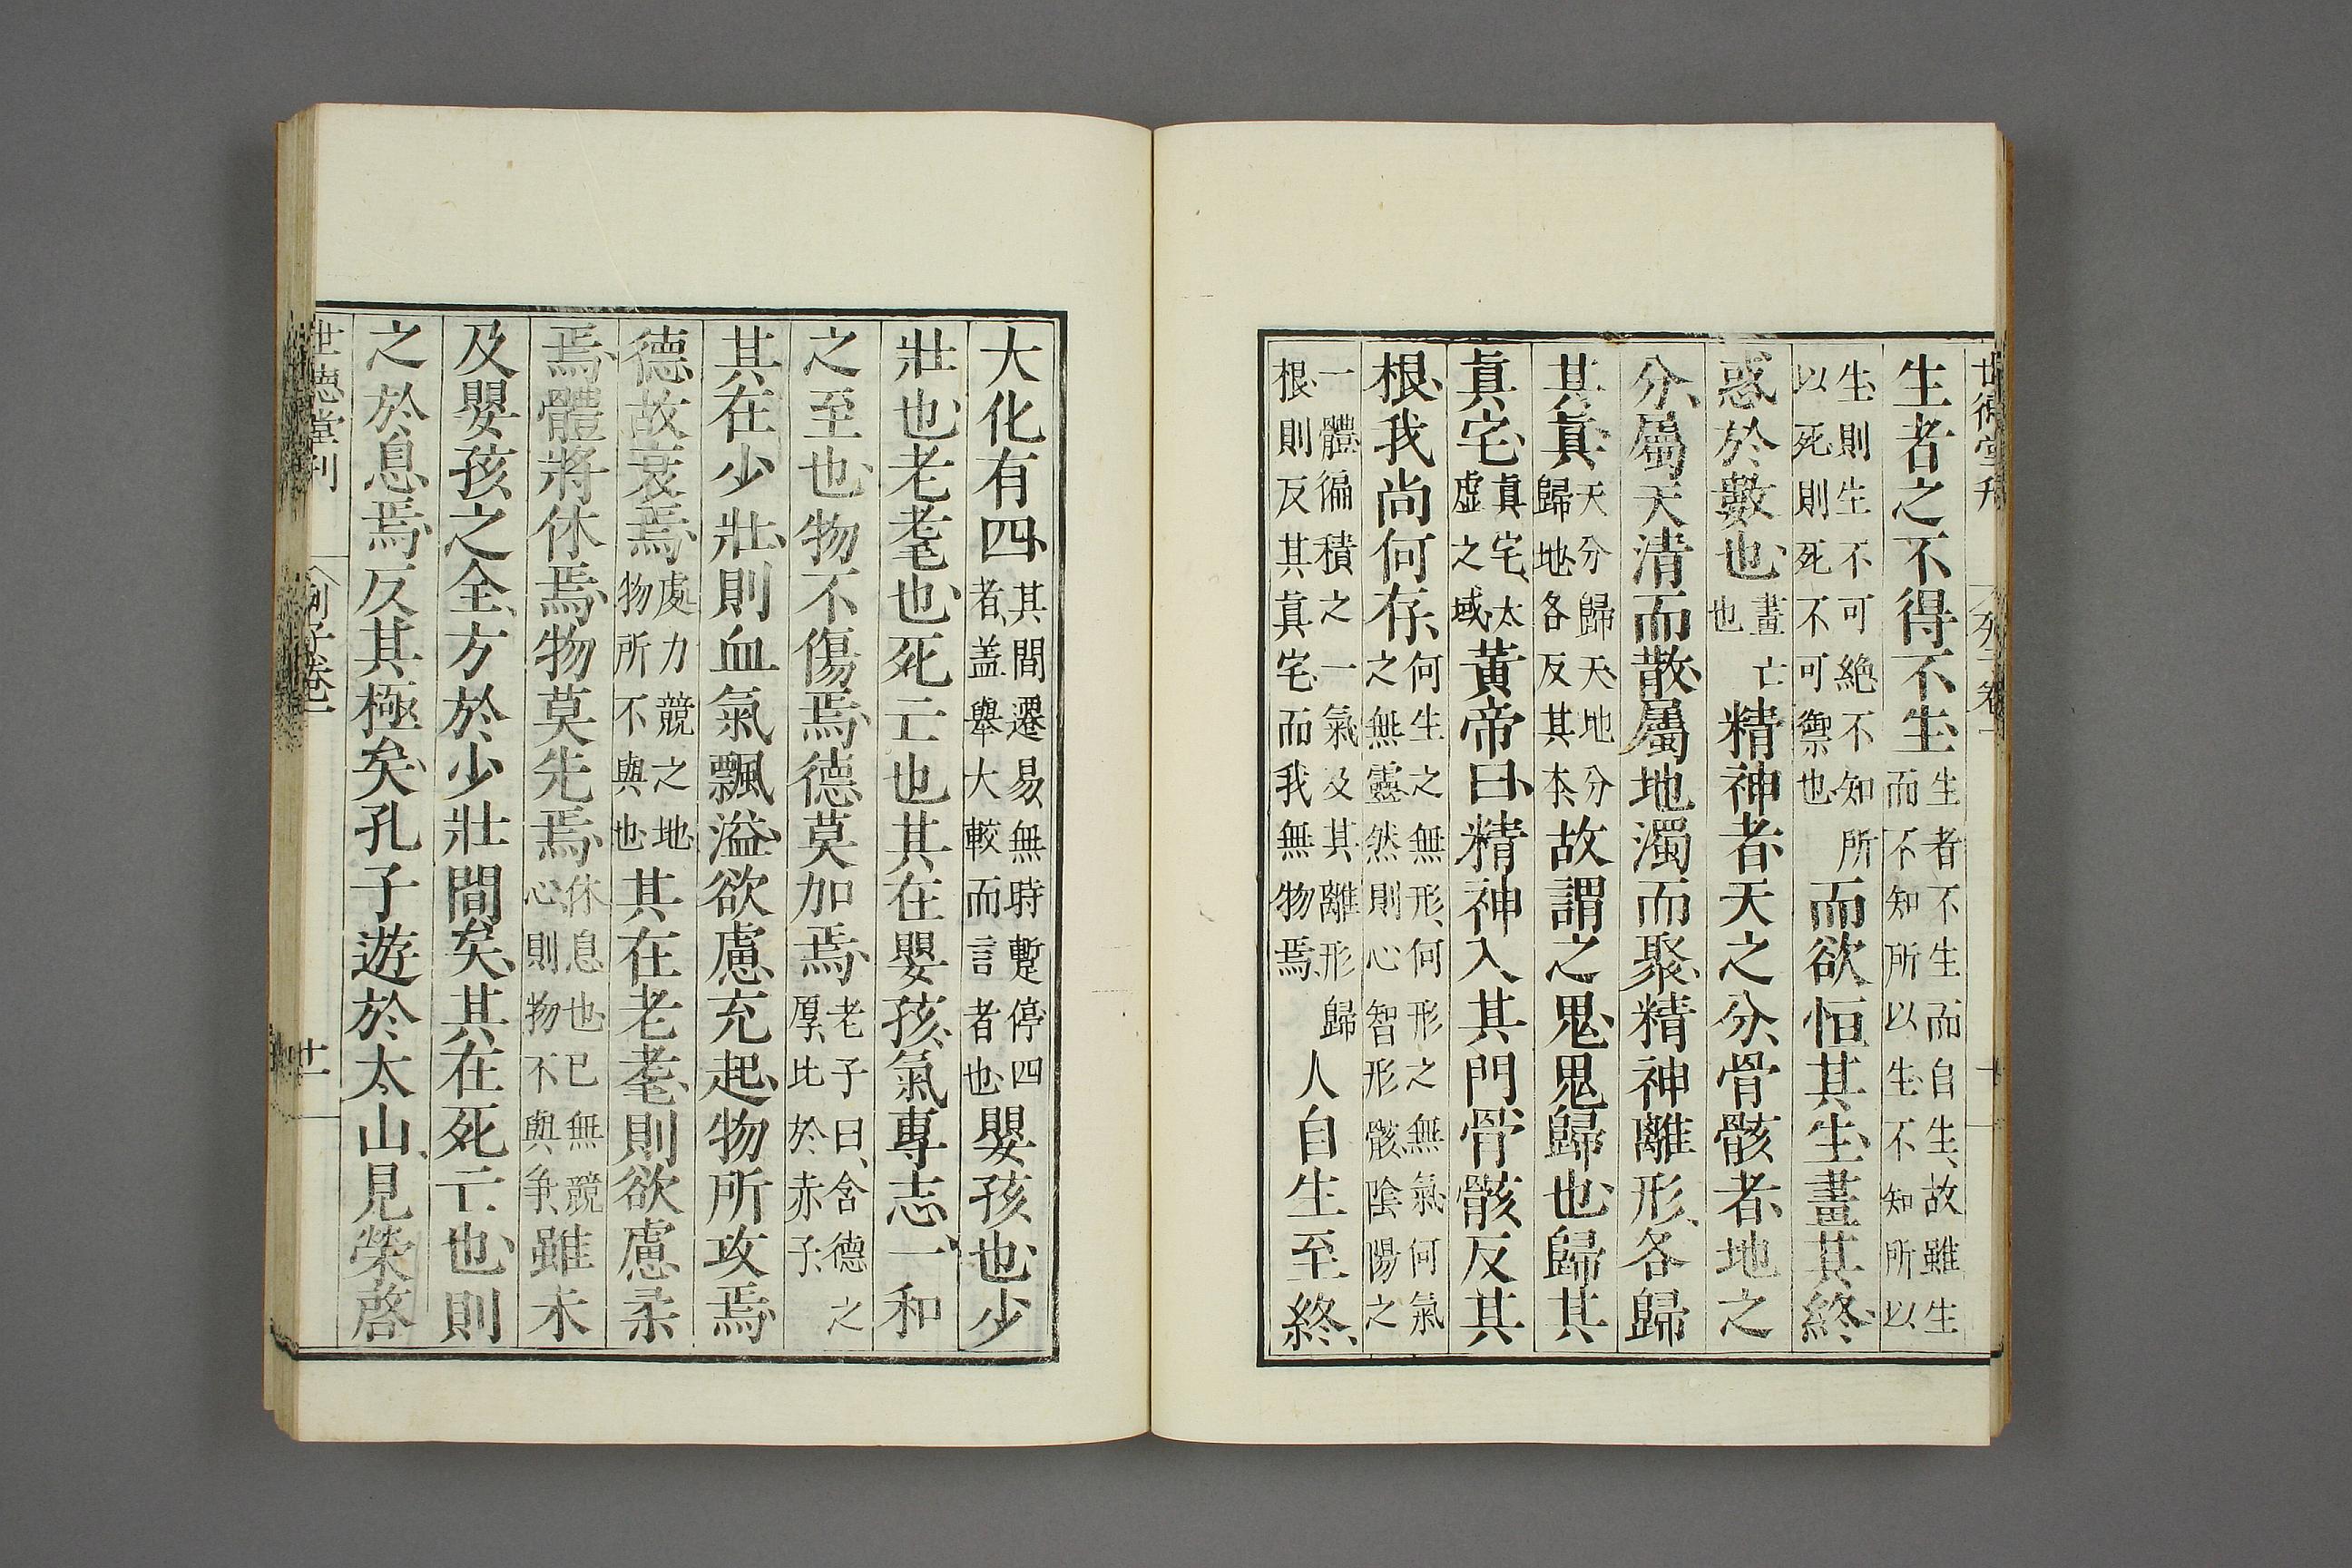 生者之不得不生、生者不生而自生、故雖生而不知所以生、不知所以
生、則生不可絶、不知所以死、則死不可禦也、而欲恒其生、畫其終、
惑於數也、畫亡也精神者、天之分、骨骸者、地之
分、屬天清而散、屬地濁而聚、精神離形、各歸
其眞、天分歸天、地分歸地、各反其本、故謂之鬼、鬼歸也、歸其
眞宅、眞宅、太虚之域黄帝曰、精神入其門、骨骸反其
根、我尚何存、何生之無形、何形之無氣、何氣之無靈、然則心智形骸、陰陽之
一體、徧積之一氣、及其離形歸根、則反其眞宅、而我無物焉、人自生至終、
大化有四、其間遷易、無時蹔停、四者、盖舉大較而言者也、嬰孩也、少
壯也、老耄也、死亡也、其在嬰孩、氣專志一、和
之至也、物不傷焉、德莫加焉、老子曰、含德之厚、比於赤子、
其在少壯、則血氣飄溢、欲慮充起、物所攻焉、
德故衰焉、處力競之地、物所不與也、其在老耄、則欲慮柔
焉、體將休焉、物莫先焉、休息也、已無競心、則物不與爭、雖未
及嬰孩之全、方於少壯間矣、其在死亡也、則
之於息焉、反其極矣、孔子遊於太山、見榮啓
世德堂刊 列子卷一